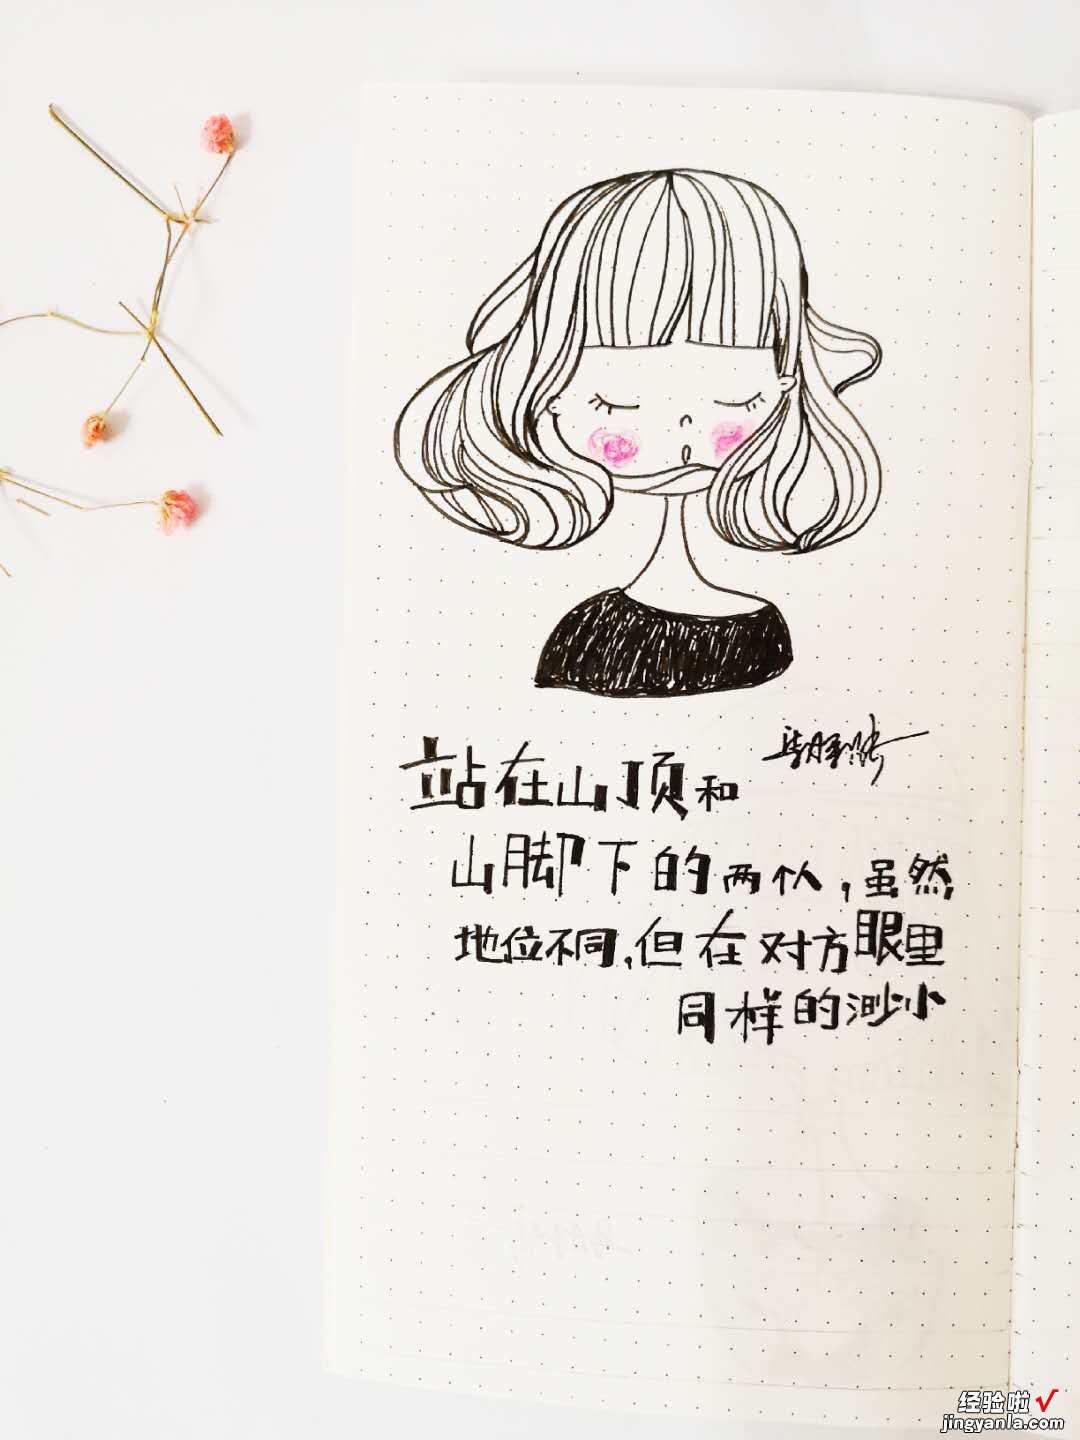 站在山顶和
山脚下的两个人，虽然
地位不同，但在对方眼里
同样的渺小
经验啦√
jingyanla.com